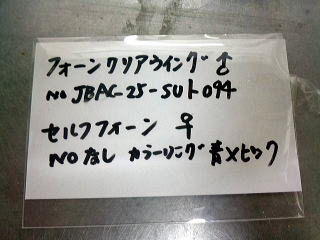 フォーンクリアウイング ♂
NO JBAC-25-SUト094
セルフフォーン ♀
NOなし カラーリング 青×ピンク